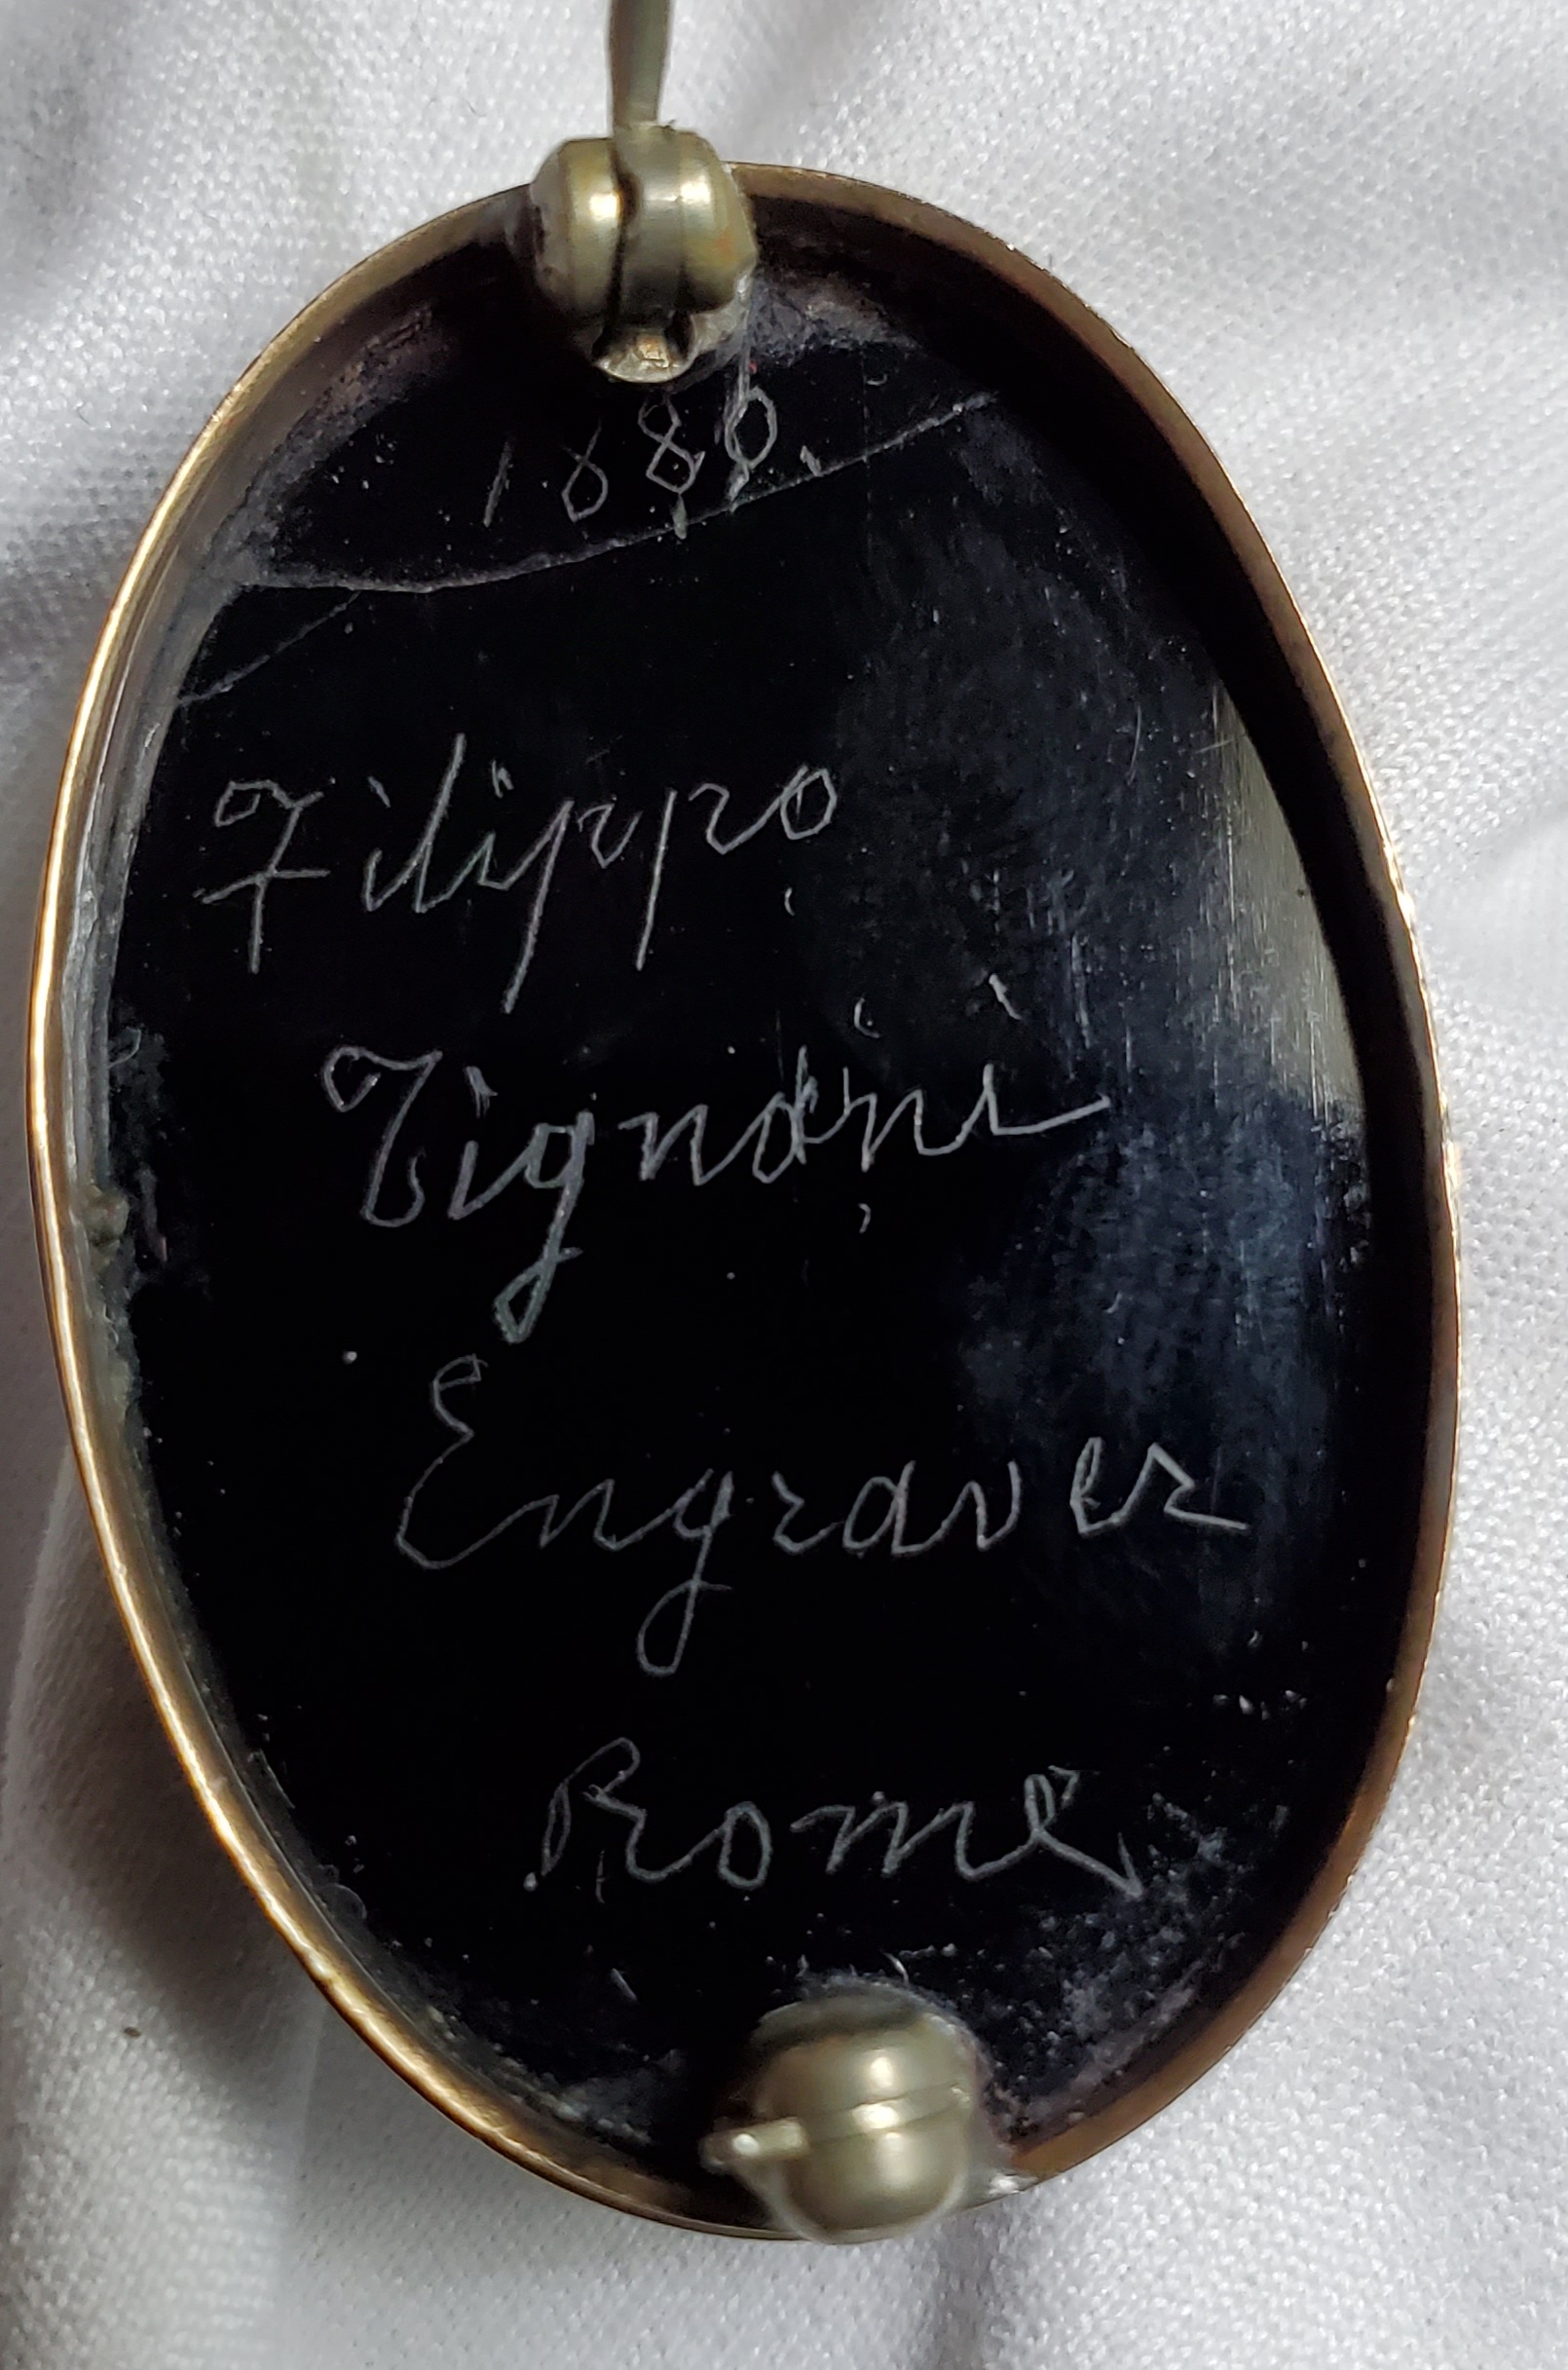 1880.
Filippo
Tignani
Engraver
Rome